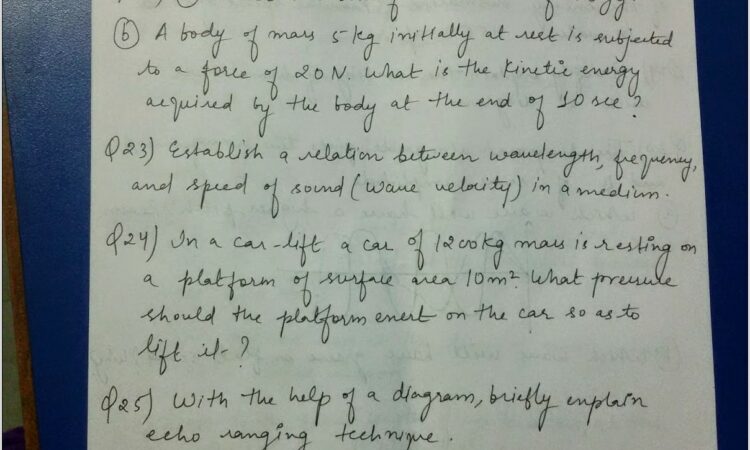 (b) A body of mass 5 kg initially at rest is subjected
to a force of 20 N. What is the Kinetic energy
acquired by the body at the end of 10 sec?
Q23) Establish a relation between wavelength, frequency,
and speed of sound (wave velocity) in a medium.
Q24) In a car-lift a car of 1200kg mass is resting on
a platform of surface area 10m². What pressure
should the platform exert on the car so as to
lift it?
Q25) With the help of a diagram, briefly explain
echo ranging technique.